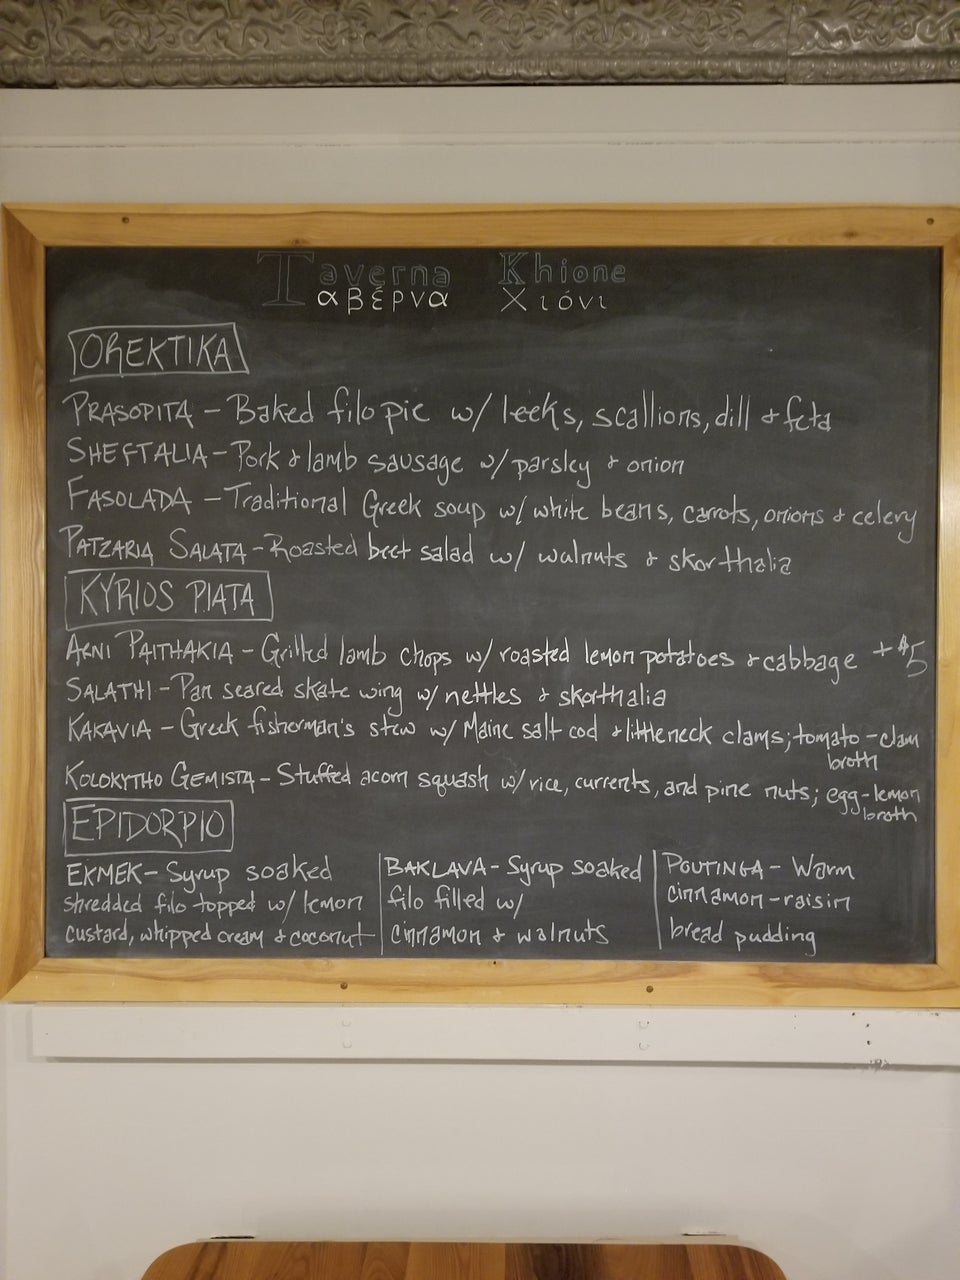 Taverna Khione
Ταβέρνα Χιόνι
OREKTIKA
PRASOPITA - Baked filo pie w/ leeks, scallions, dill & feta
SHEFTALIA - Pork & lamb sausage w/ parsley & onion
FASOLADA - Traditional Greek soup w/ white beans, carrots, onions & celery
PATZARIA SALATA - Roasted beet salad w/ walnuts & skorthalia
KYRIOS PIATA
ARNI PAITHAKIA - Grilled lamb chops w/ roasted lemon potatoes & cabbage + $5
SALATHI - Pan seared skate wing w/ nettles & skorthalia
KAKAVIA - Greek fisherman's stew w/ Maine salt cod & littleneck clams; tomato-clam
broth
KOLOKYTHO GEMISTA - Stuffed acorn squash w/ rice, currents, and pine nuts; egg-lemon
broth
EPIDORPIO
EKMEK - Syrup soaked
shredded filo topped w/ lemon
custard, whipped cream & coconut
BAKLAVA - Syrup soaked
filo filled w/
cinnamon & walnuts
POUTINGA - Warm
cinnamon-raisin
bread pudding